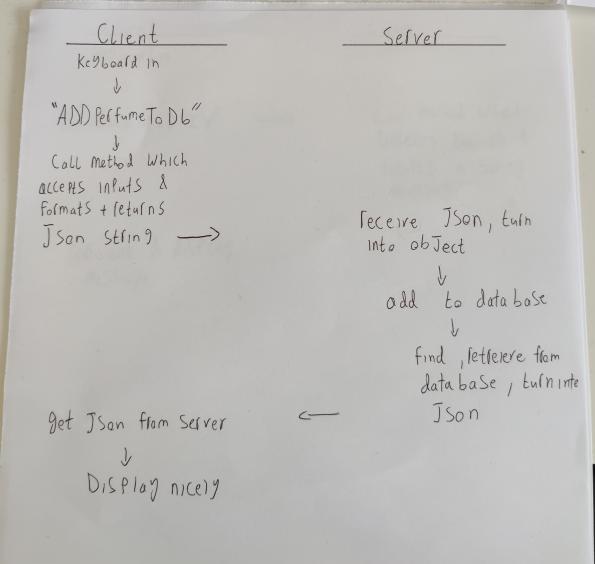 Client
Keyboard in
↓
"ADDPerfumeToDb"
↓
Call Method which
accepts inputs &
formats + returns
Json string →
Server
receive Json, turn
into object
↓
add to database
↓
find, retrieve from
database, turn into
Json
←
get Json from server
↓
Display nicely